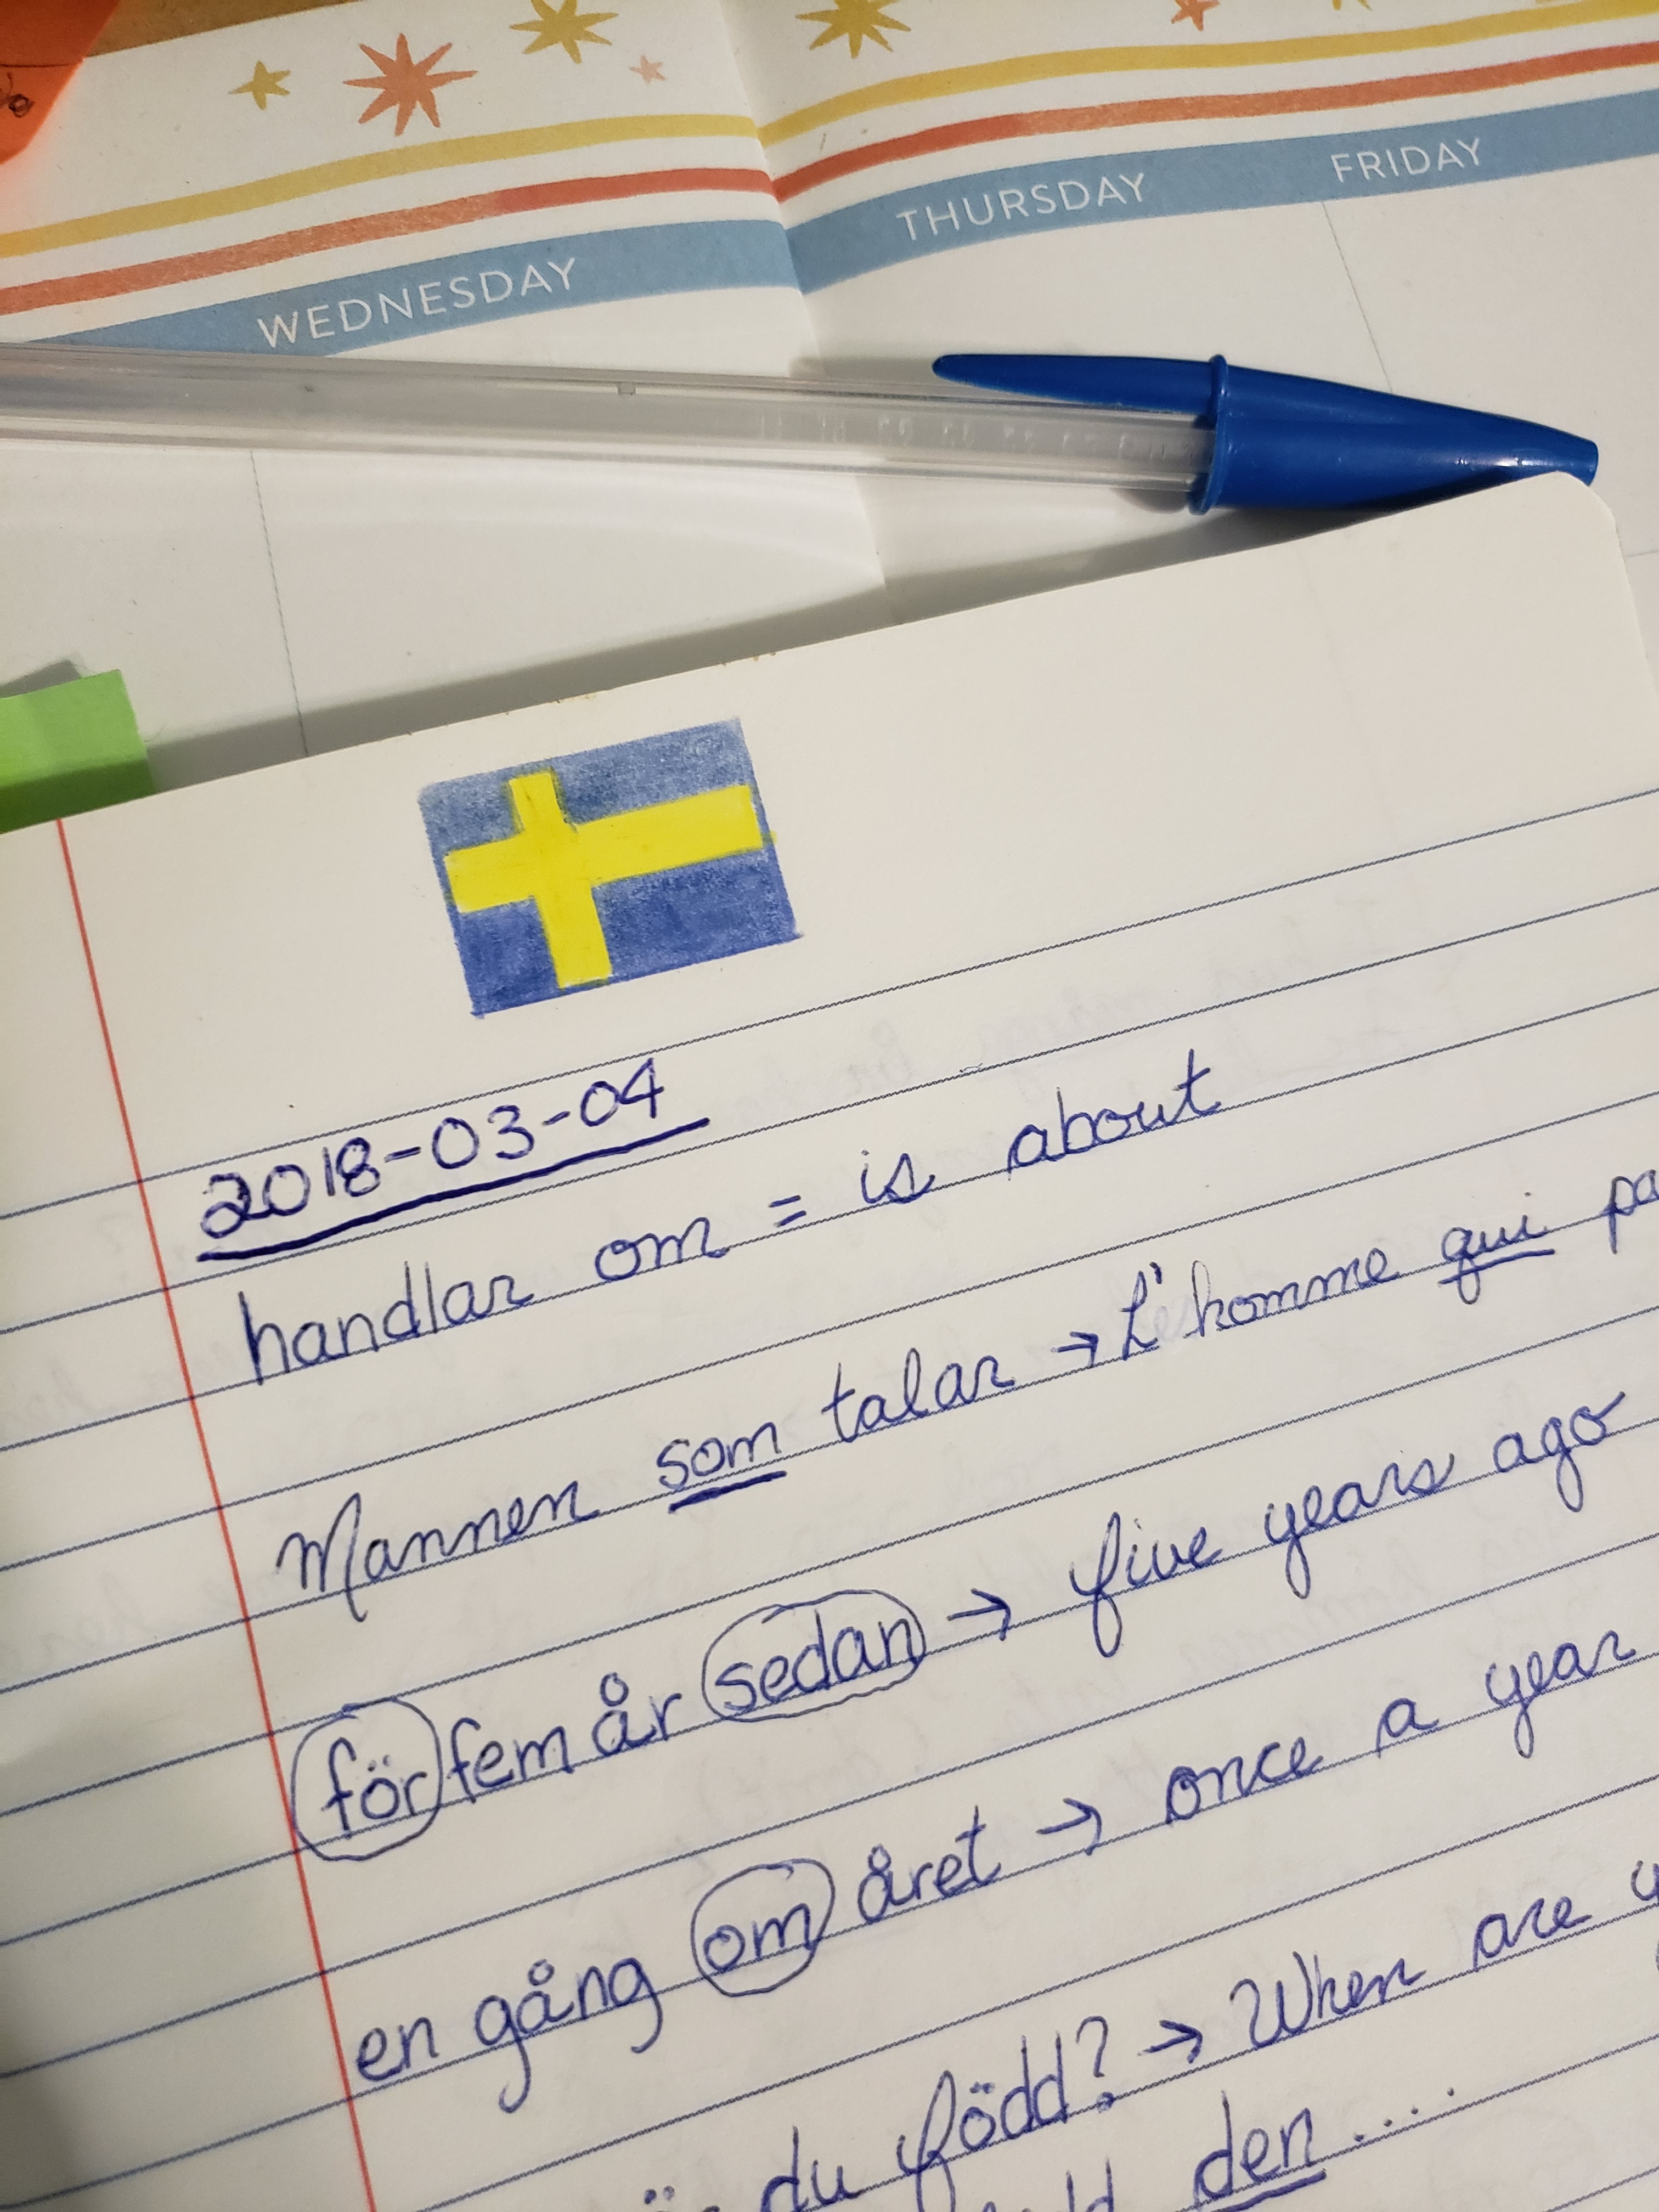 WEDNESDAY THURSDAY FRIDAY
2018-03-04
handlar om = is about
Mannen som talar → L'homme qui
för fem år sedan → five years ago
en gång om året → once a year
du född? → When are
den....